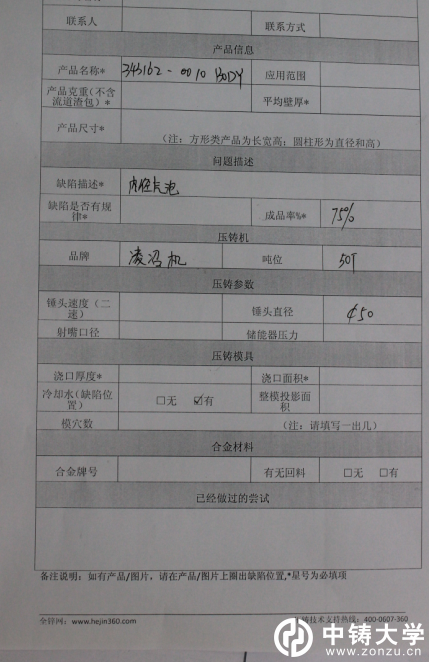 联系人 联系方式
产品信息
产品名称* 343162-0010 BODY 应用范围
产品克重(不含流道渣包)* 平均壁厚*
产品尺寸* (注:方形类产品为长宽高;圆柱形为直径和高)
问题描述
缺陷描述* 内径气泡
缺陷是否有规律* 成品率%* 75%
压铸机
品牌 凌冯机 吨位 50T
压铸参数
锤头速度(二速) 锤头直径 ¢50
射嘴口径 储能器压力
压铸模具
浇口厚度* 浇口面积*
冷却水(缺陷位置) □无 ☑有 整模投影面积
模穴数 (注:请填写一出几)
合金材料
合金牌号 有无回料 □无 □有
已经做过的尝试
备注说明:如有产品/图片,请在产品/图片上圈出缺陷位置,*星号为必填项
全锌网:www.hejin360.com 铸技术支持热线:400-0607-360
中铸大学
www.zonzu.cn